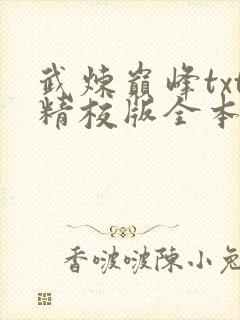 武炼巅峰txt
精校版全本
香啵啵陳小兔